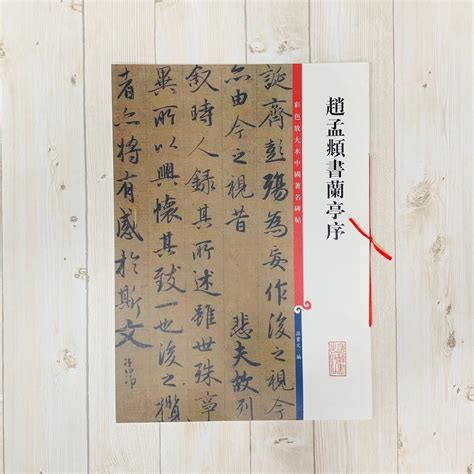 趙孟頫書蘭亭序
彩色放大本中國著名碑帖
孫寶文 編
誕齊彭殤為妄作後之視今
亦由今之視昔 悲夫故列
叙時人錄其所述雖世殊事
異所以興懷其致一也後之攬
者亦將有感於斯文